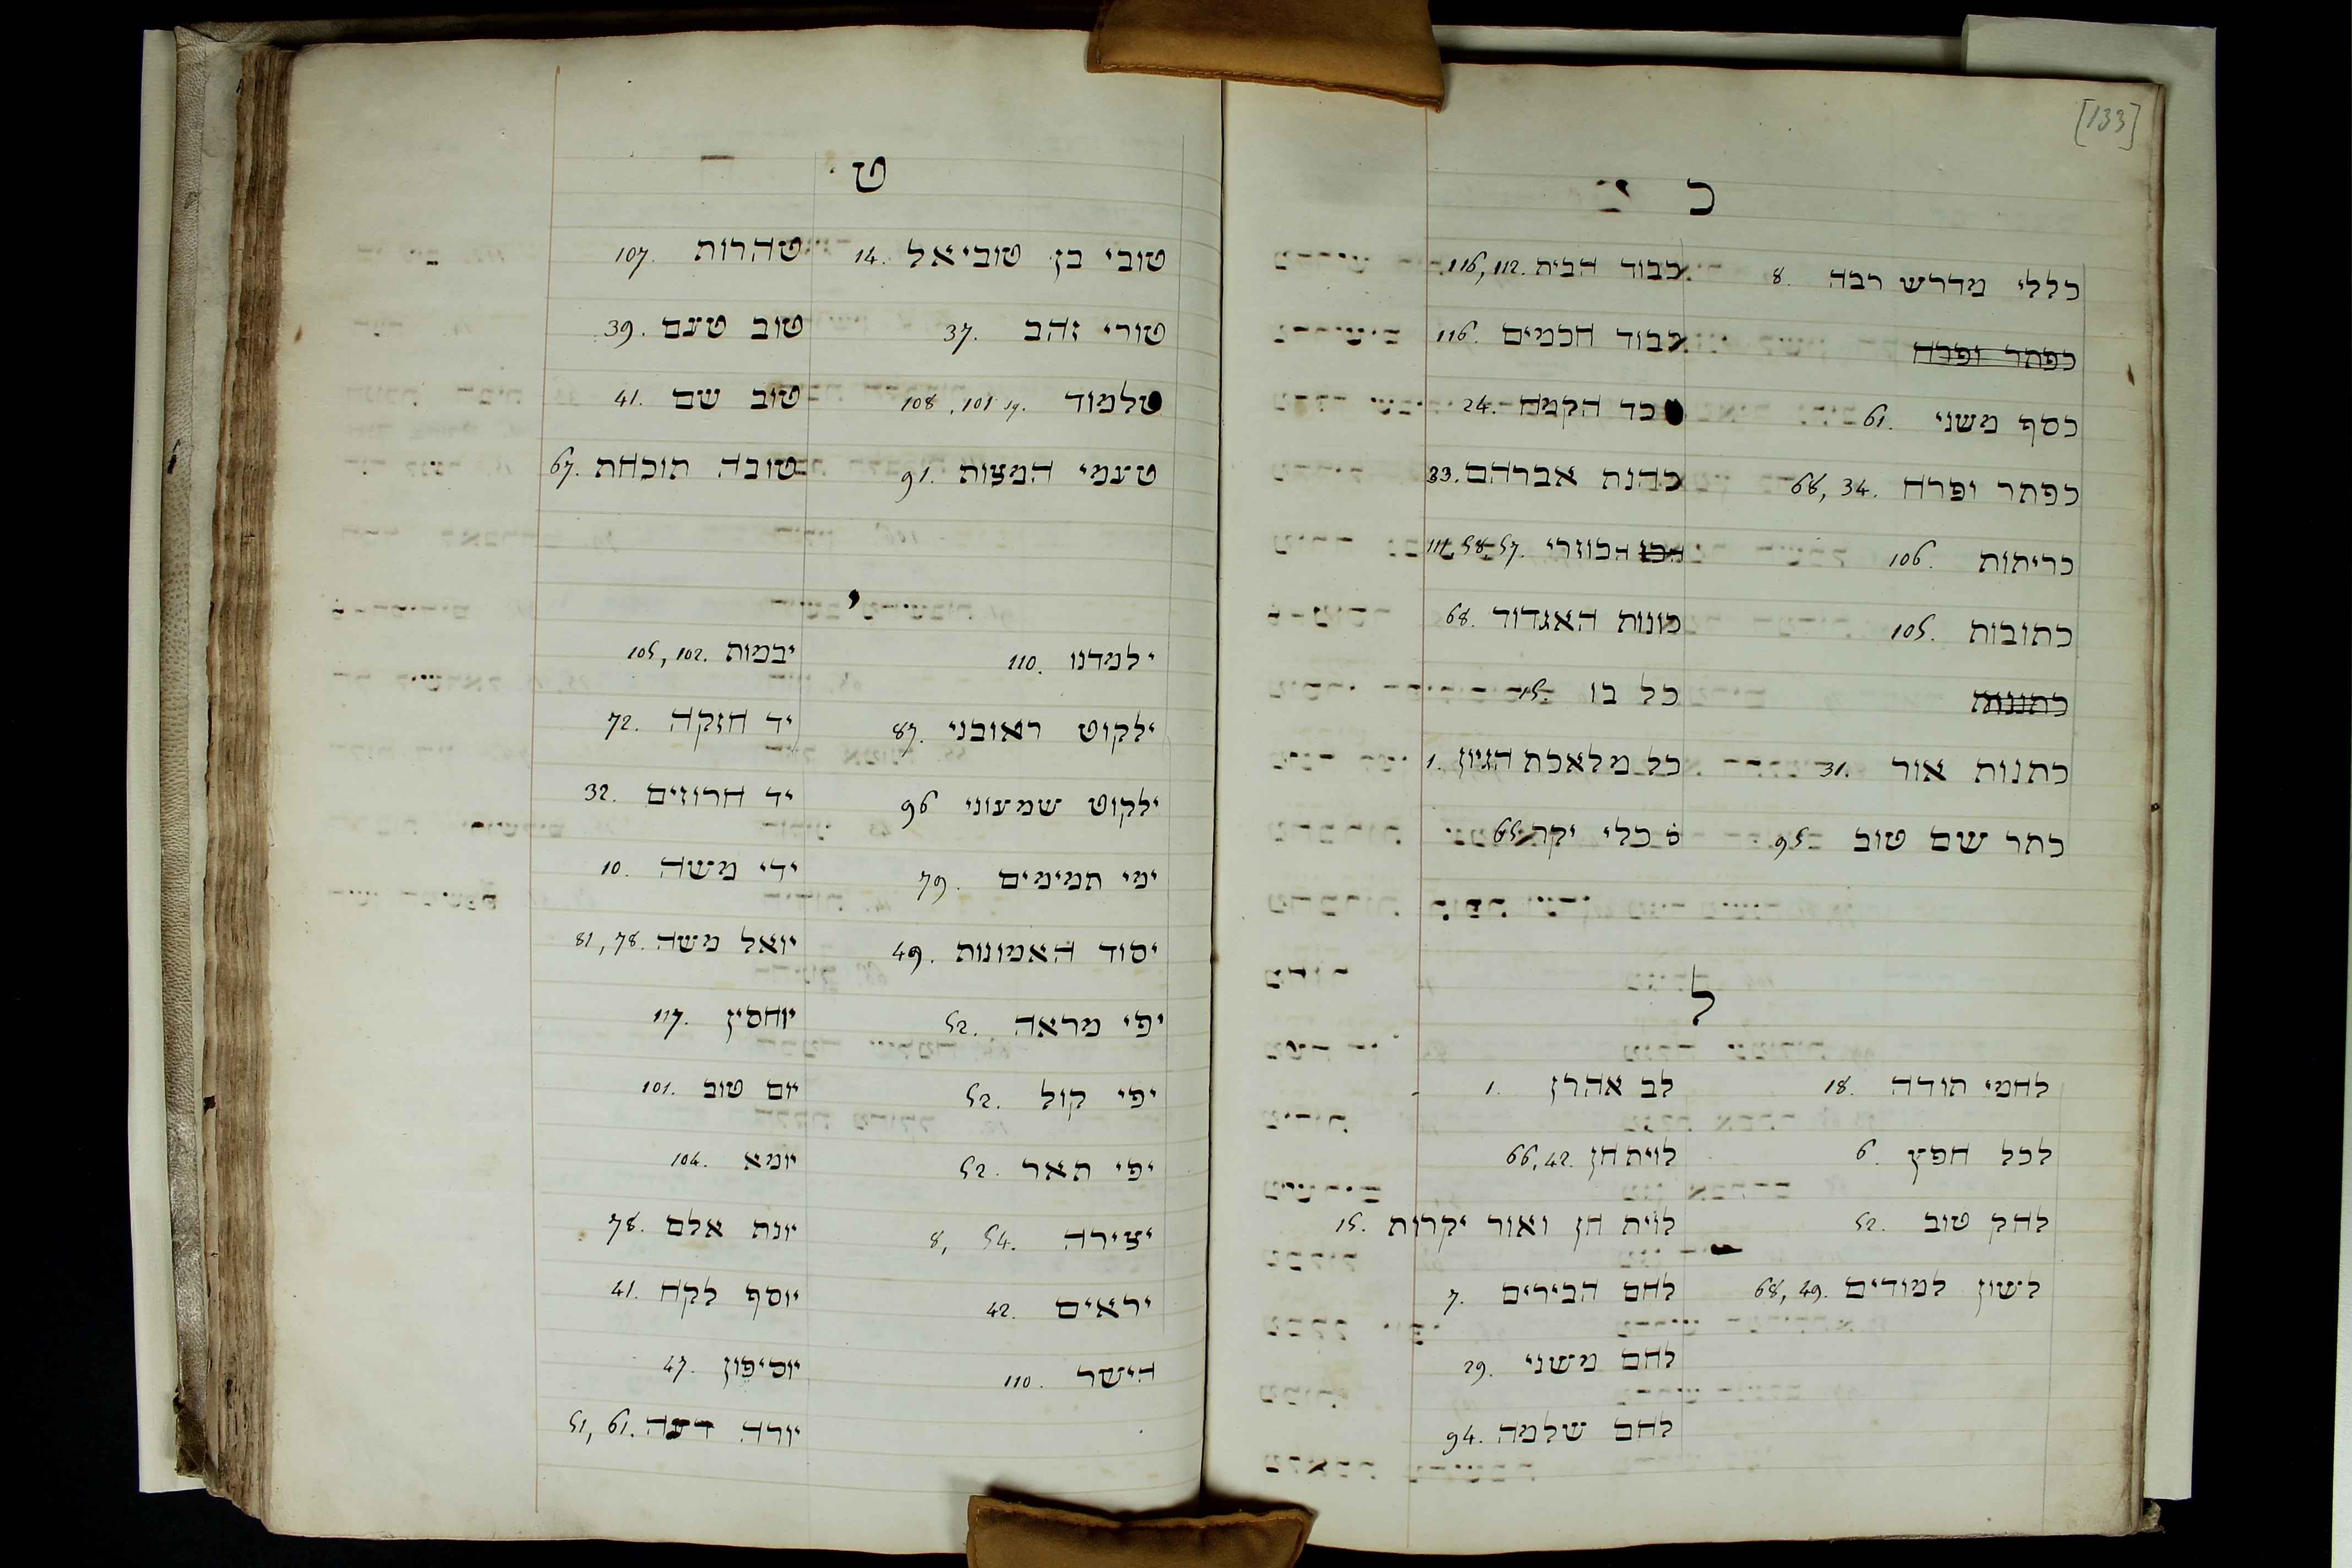 ט
טהרות 107.
טוב טעם 39.
טוב שם 41.
טובה תוכחת 67.
טובי בן טוביאל 14.
טורי זהב 37.
טלמוד 19. 101, 108
טעמי המצות 91.
י
יבמות 102, 105.
יד חזקה 72.
יד חרוזים 32.
ידי משה 10.
יואל משה 78, 81.
יוחסין 117.
יום טוב 101.
יומא 104.
יונת אלם 78.
יוסף לקח 41.
יוסיפון 47.
יורה דעה 61, 51.
ילמדנו 110.
ילקוט ראובני 87.
ילקוט שמעוני 96
ימי תמימים 79.
יסוד האמונות 49.
יפי מראה 52.
יפי קול 52.
יפי תאר 52.
יצירה 54. 8,
יראים 42.
הישר 110.
[133]
כ
כבוד הבית 112, 116.
כבוד חכמים 116.
כד הקמח 24.
כהנת אברהם 33.
הכוזרי 57. 58. 111
כונות האגדוד 68.
כל בו 15.
כל מלאכת הגיון 1.
כלי יקר 65
כללי מדרש רבה 8.
כפתר ופרח
כסף משני 61.
כפתר ופרח 34, 66.
כריתות 106.
כתובות 105.
כתנות
כתנות אור 31.
כתר שם טוב 95
ל
לב אהרן 1.
לוית חן 42, 66.
לוית חן ואור יקרות 15.
לחם הבירים 7.
לחם משני 29.
לחם שלמה 94.
לחמי תודה 18.
לכל חפץ 6.
לחק טוב 52.
לשון למודים 49, 68.